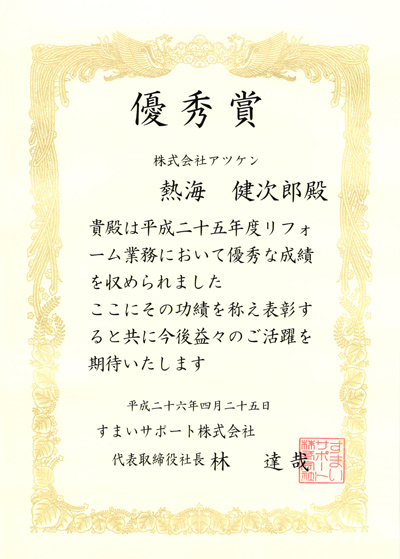 優秀賞
株式会社アツケン
熱海 健次郎殿
貴殿は平成二十五年度リフォ
ーム業務において優秀な成績
を収められました
ここにその功績を称え表彰す
ると共に今後益々のご活躍を
期待いたします
平成二十六年四月二十五日
すまいサポート株式会社
代表取締役社長 林 達哉
すまい
サポート
株式会社